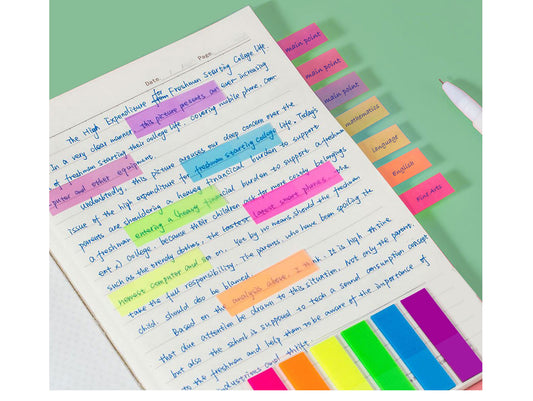 Date Page
The High Expenditure for Freshman Starting College Life
In a very clear manner, this picture presents an ever-increasing
of freshman starting their college life, covering mobile phone, com-
puter and other equipment.
Undoubtedly, this picture arouses our deep concern over the
issue of the high expenditure for freshman starting college life. Today's
parents are shouldering a heavy financial burden to support
a freshman entering a heavy financial burden to support a freshm
ent, college because their children ask for more costly belongings
such as the trendy clothes, the latest smart phones.
honest computer and so on. Yet by no means should the freshman
take the full responsibility. The parents, who have been spoiling the
child, should also be blamed.
Based on the analysis above, I think it is high time
that due attention be drawn to this situation. Not only the parents,
but also the school is supposed to teach a sound consumption concept
to the freshman and help them to be aware of the importance of
industrious and thrift
main point
main point
main point
mathematics
language
English
Fine Arts